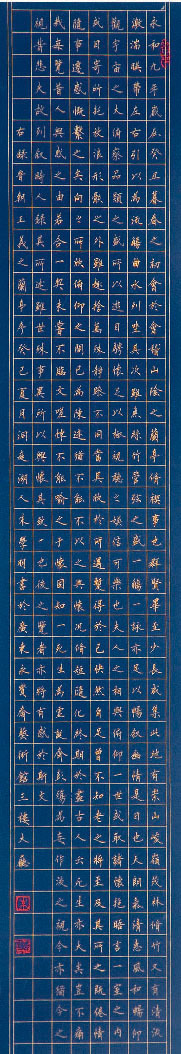 永和九年歲在癸丑暮春之初會於會稽山陰之蘭亭修禊事也群賢畢至少長咸集此地有崇山峻嶺茂林修竹又有清流
激湍映帶左右引以為流觴曲水列坐其次雖無絲竹管弦之盛一觴一詠亦足以暢敘幽情是日也天朗氣清惠風和暢仰
觀宇宙之大俯察品類之盛所以遊目騁懷足以極視聽之娛信可樂也夫人之相與俯仰一世或取諸懷抱晤言一室之內
或因寄所託放浪形骸之外雖趣捨萬殊靜躁不同當其欣於所遇暫得於己快然自足曾不知老之將至及其所之既倦情
隨事遷感慨係之矣向之所欣俯仰之間已為陳迹猶不能不以之興懷況修短隨化終期於盡古人云死生亦大矣豈不痛
哉每覽昔人興感之由若合一契未嘗不臨文嗟悼不能喻之于懷固知一死生為虛誕齊彭殤為妄作後之視今亦猶今之
視昔悲夫故列敘時人錄其所述雖世殊事異所以興懷其致一也後之覽者亦將有感於斯文
右錄晉朝王羲之蘭亭序癸巳夏月洞庭湖人朱學明書於廣東永寶齋藝術館三樓大廳